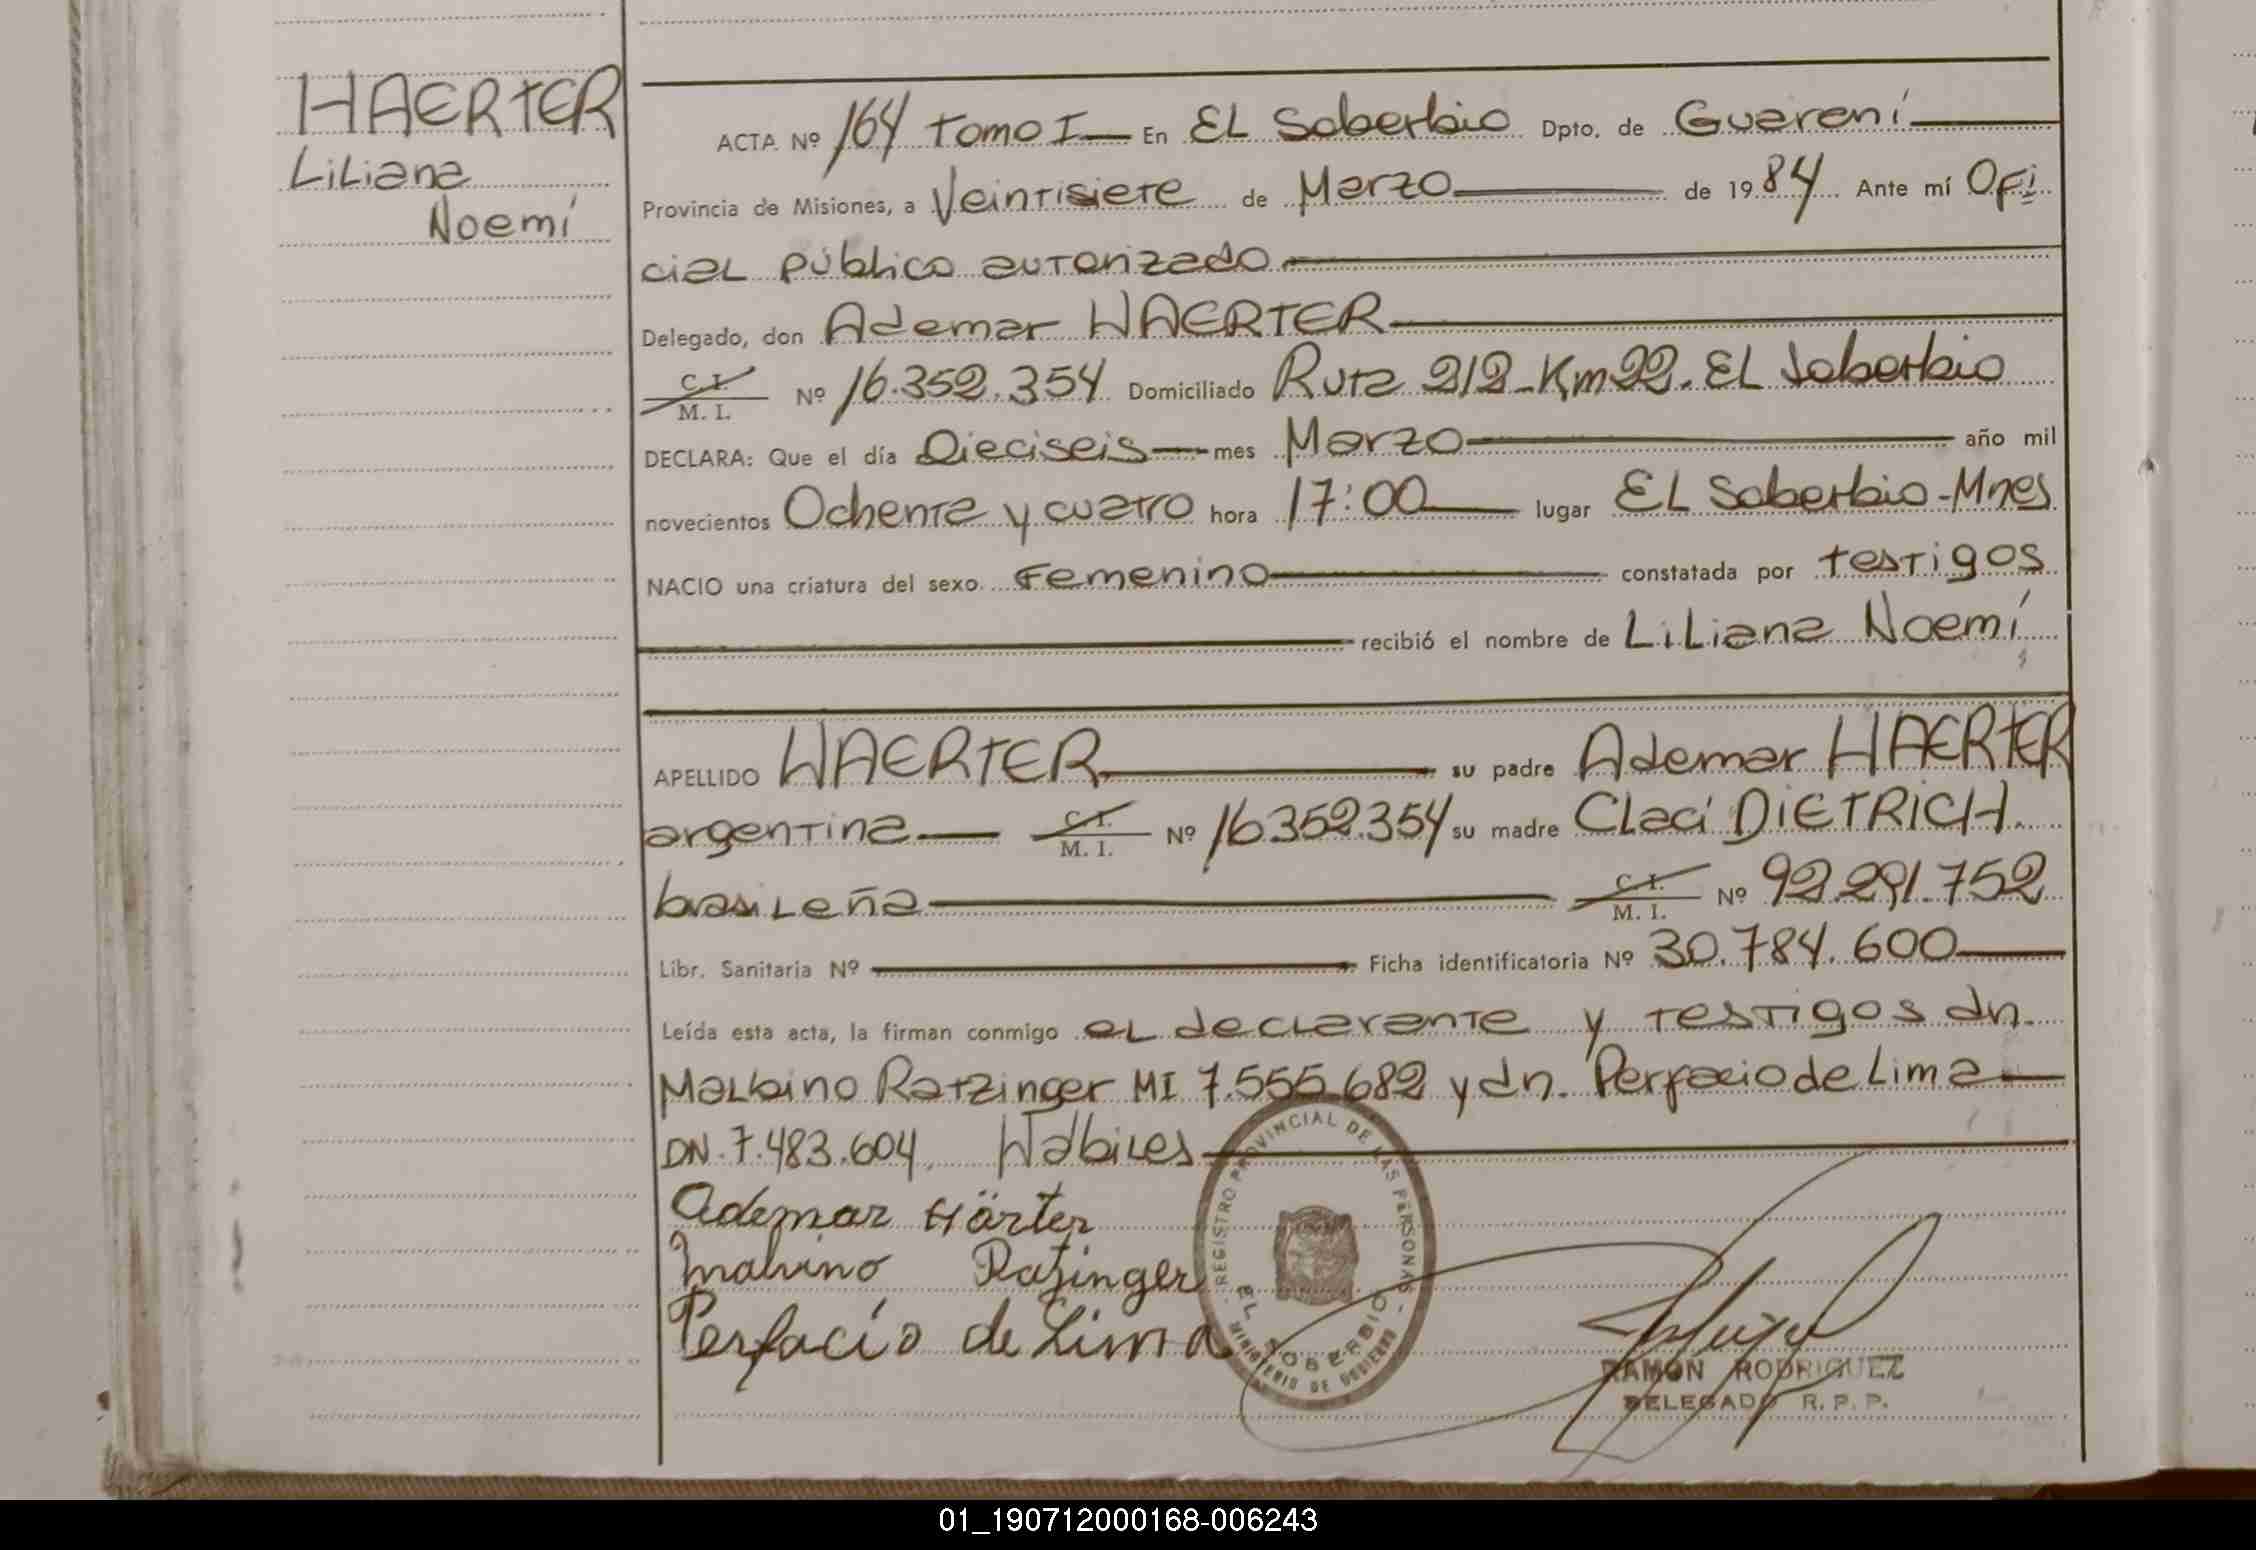 HAERTER
Liliana
Noemí
ACTA Nº 164 Tomo I — En El Soberbio Dpto. de Guaraní
Provincia de Misiones, a Veintisiete de Marzo de 1984 Ante mí Ofi
cial público autorizado
Delegado, don Ademar HAERTER
C. I. / M. I. Nº 16.352.354 Domiciliado Ruta 212-Km 22. El Soberbio
DECLARA: Que el día Dieciseis mes Marzo año mil
novecientos Ochenta y cuatro hora 17:00 lugar El Soberbio-Mnes
NACIO una criatura del sexo Femenino constatada por testigos
recibió el nombre de Liliana Noemí
APELLIDO HAERTER su padre Ademar HAERTER
argentina C. I. / M. I. Nº 16.352.354 su madre Claci DIETRICH.
brasileña C. I. / M. I. Nº 92.291.752
Libr. Sanitaria Nº — Ficha identificatoria Nº 30.784.600
Leída esta acta, la firman conmigo el declarante y testigos dn.
Malbino Ratzinger MI 7.555.682 y dn. Perfacio de Lima
DN. 7.483.604, Hábiles
Ademar Härter
Malvino Ratzinger
Perfacio de Lima
REGISTRO PROVINCIAL DE LAS PERSONAS
EL SOBERBIO
MINISTERIO DE GOBIERNO
RAMON RODRIGUEZ
DELEGADO R. P. P.
01_190712000168-006243